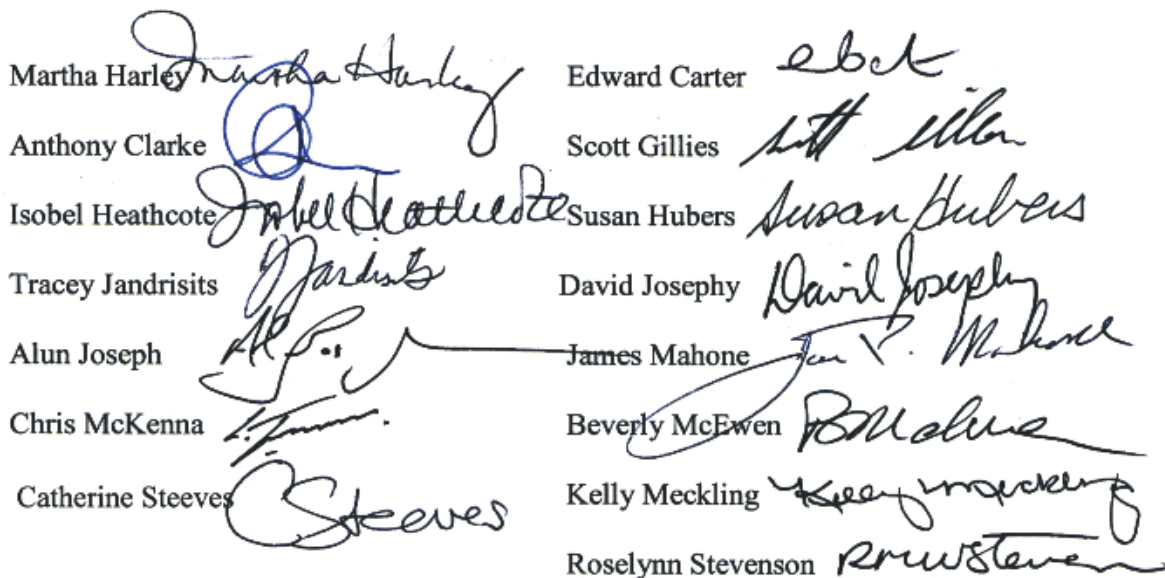 Martha Harley Martha Harley
Anthony Clarke
Isobel Heathcote Isobel Heathcote
Tracey Jandrisits TJandrisits
Alun Joseph
Chris McKenna
Catherine Steeves CSteeves
Edward Carter
Scott Gillies
Susan Hubers Susan Hubers
David Josephy David Josephy
James Mahone James P. Mahone
Beverly McEwen
Kelly Meckling Kelly Meckling
Roselynn Stevenson